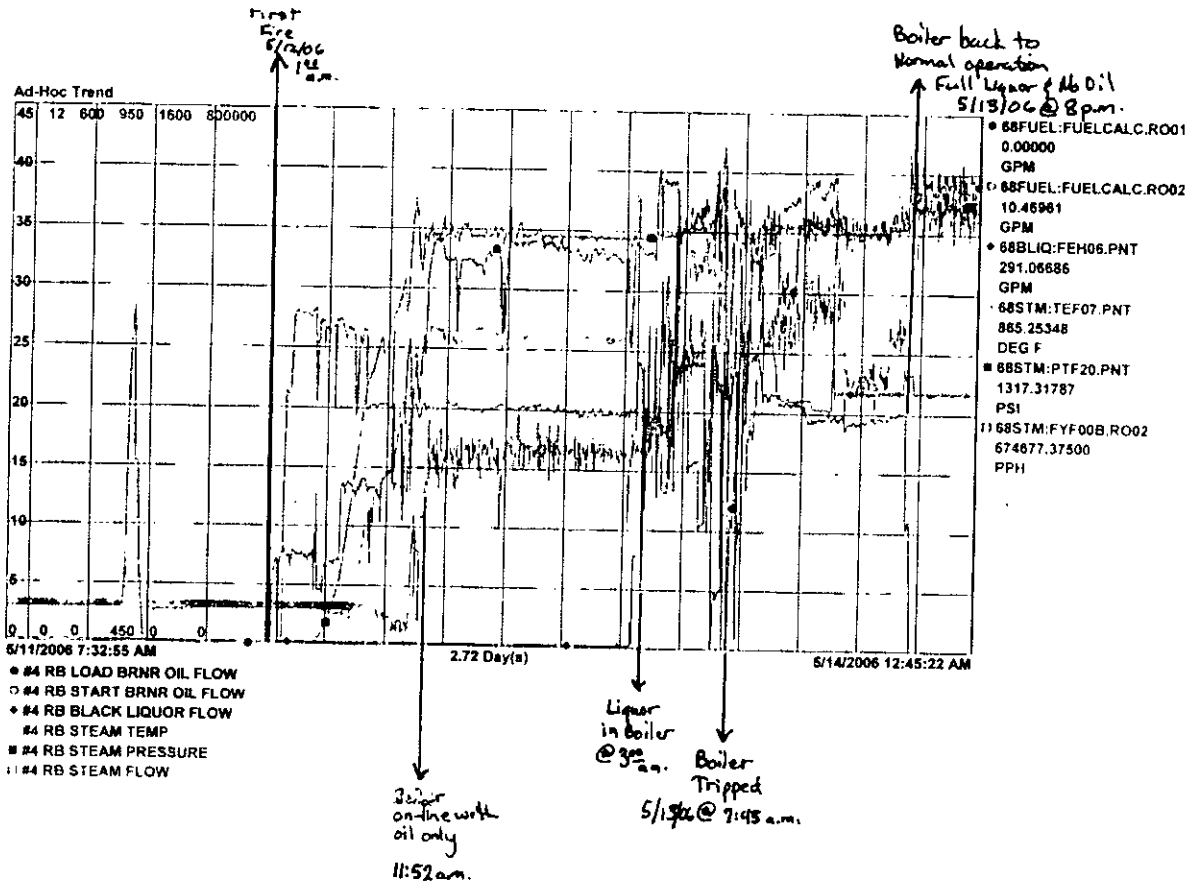 First
Fire
5/12/06
1:22
a.m.
Boiler back to
Normal operation
Full Liquor & No Oil
5/13/06 @ 8 p.m.
Ad-Hoc Trend
45 12 600 950 1600 800000
40
35
30
25
20
15
10
5
0 0 0 450 0 0
5/11/2006 7:32:55 AM
2.72 Day(s)
5/14/2006 12:45:22 AM
68FUEL:FUELCALC.RO01
0.00000
GPM
68FUEL:FUELCALC.RO02
10.46961
GPM
68BLIQ:FEH06.PNT
291.06686
GPM
68STM:TEF07.PNT
865.25348
DEG F
68STM:PTF20.PNT
1317.31787
PSI
68STM:FYF00B.RO02
674677.37500
PPH
#4 RB LOAD BRNR OIL FLOW
#4 RB START BRNR OIL FLOW
#4 RB BLACK LIQUOR FLOW
#4 RB STEAM TEMP
#4 RB STEAM PRESSURE
#4 RB STEAM FLOW
Boiler
on-line with
oil only
11:52 am.
Liquor
in Boiler
@ 3:00 a.m.
Boiler
Tripped
5/13/06 @ 7:45 a.m.